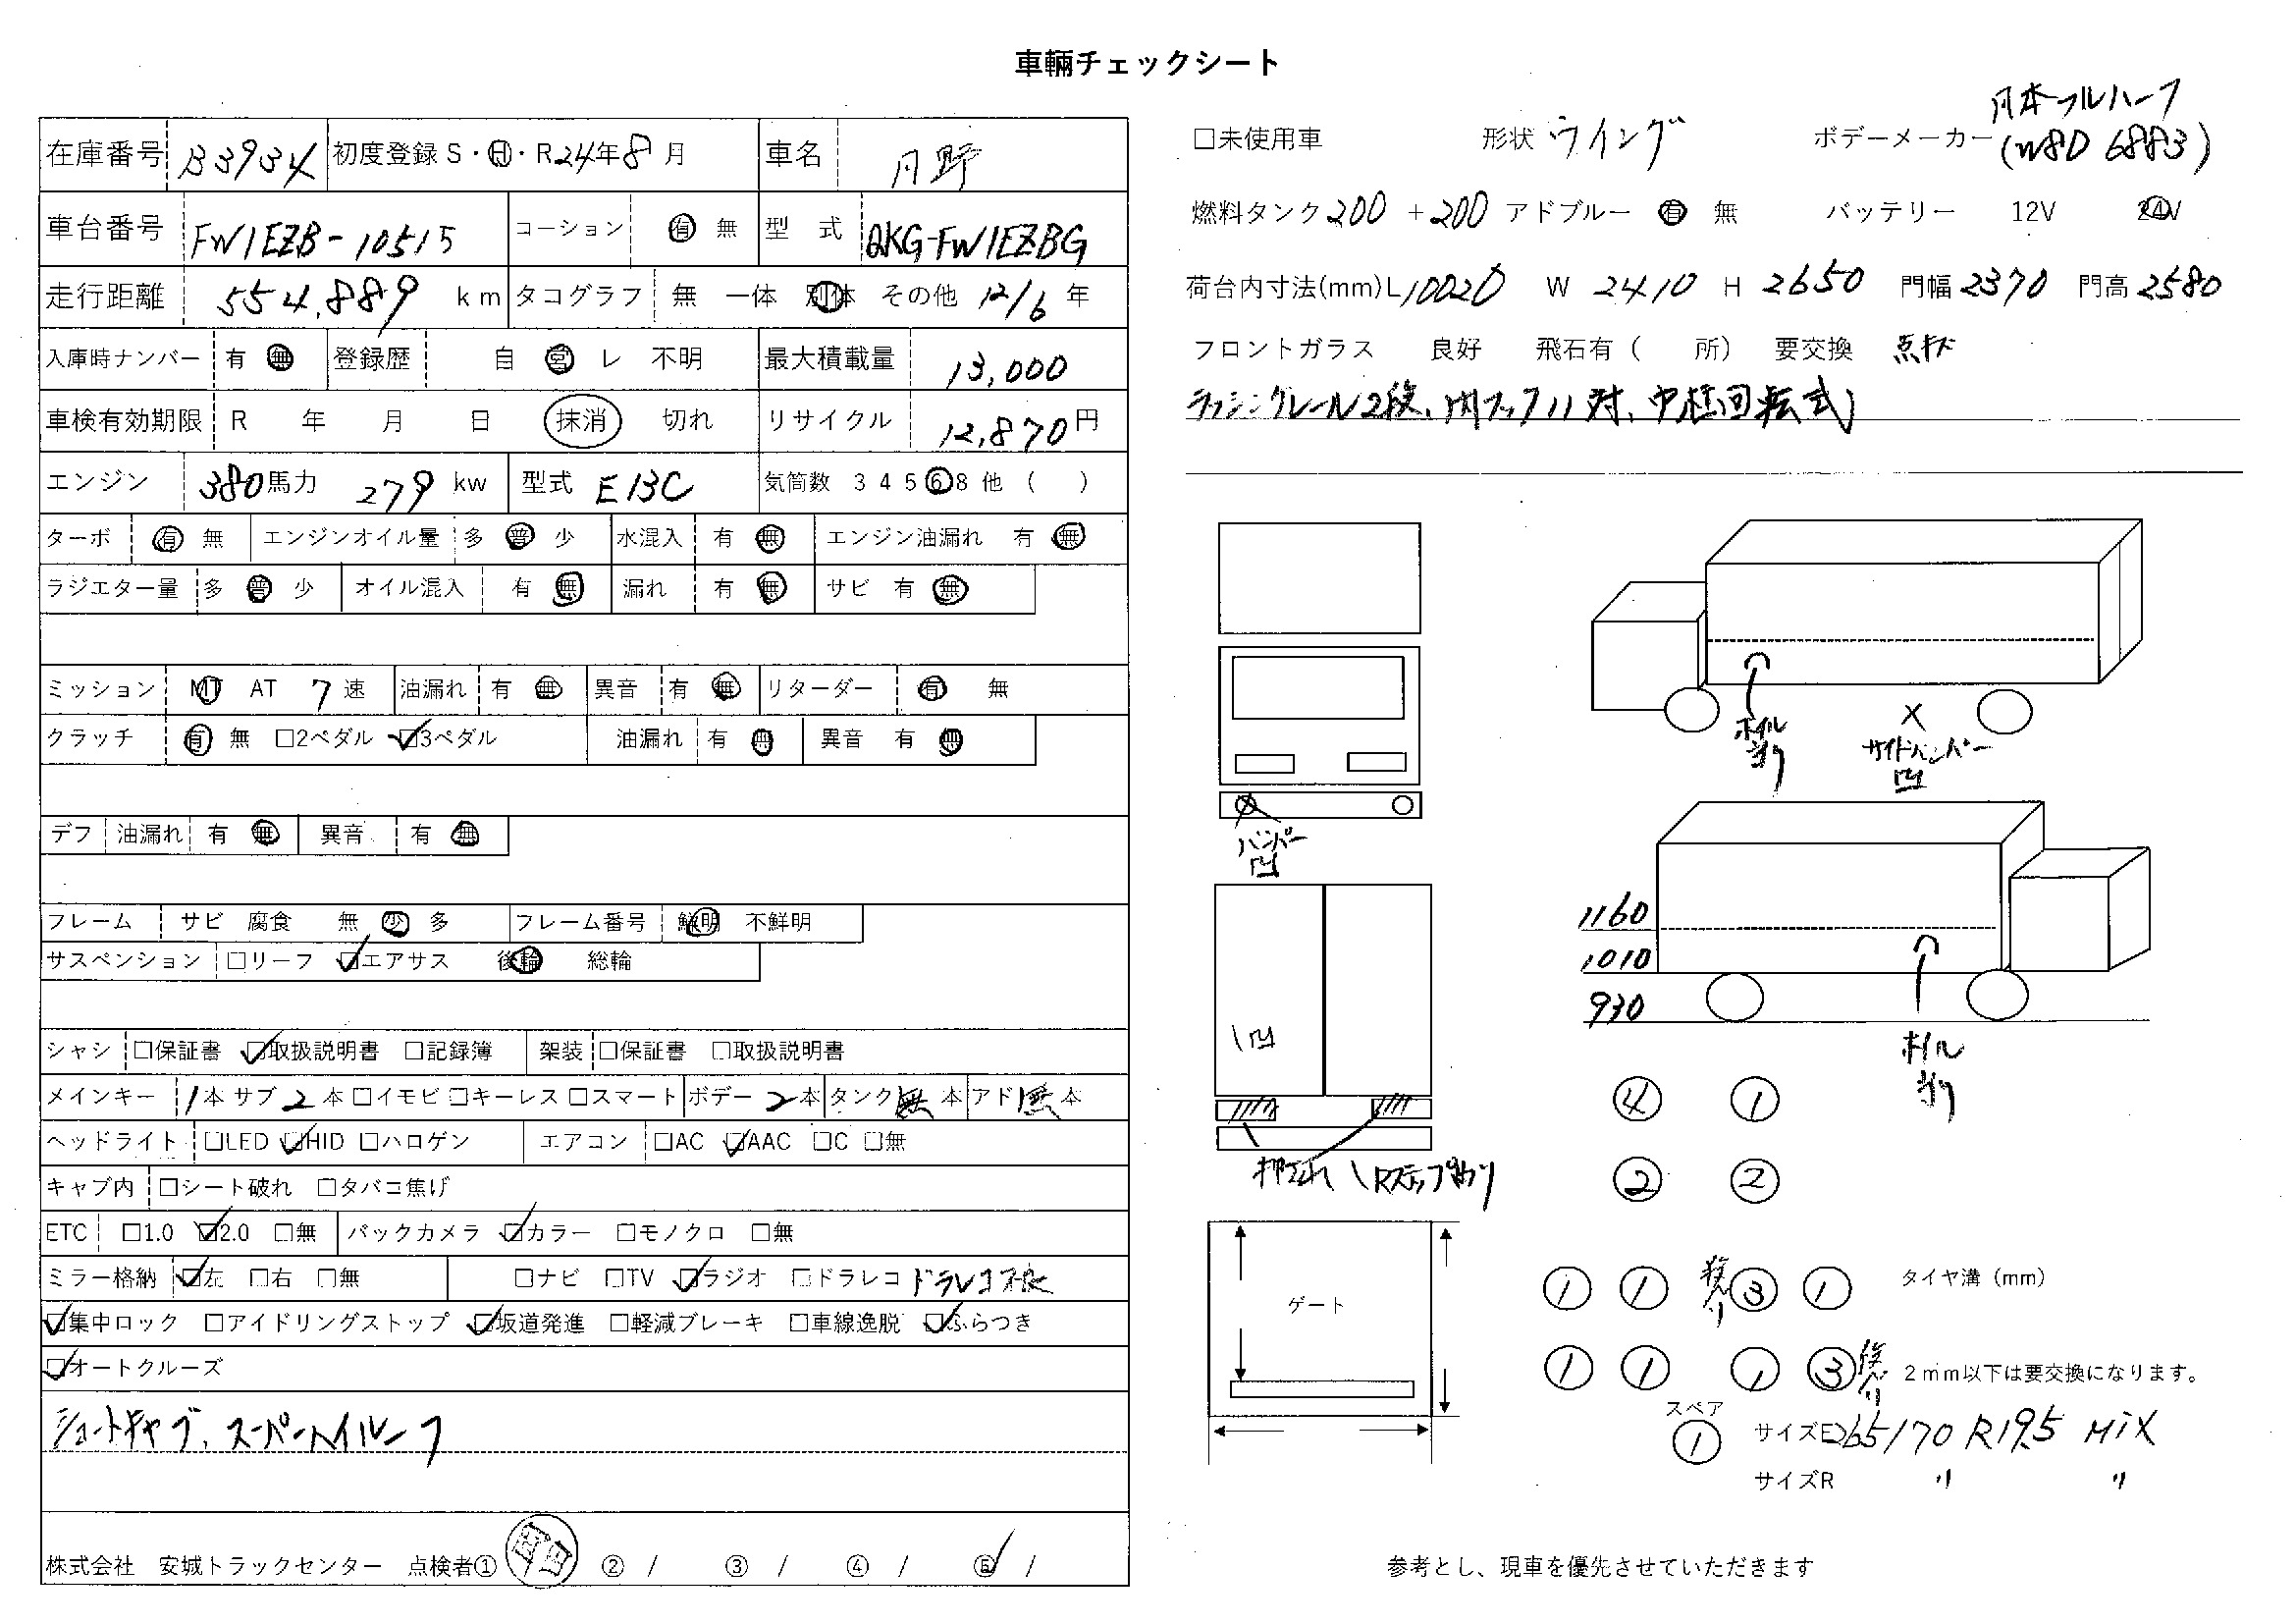 車輌チェックシート
在庫番号 B3934 初度登録 S・H・R24年8月 車名 日野
車台番号 FW1EZB-10515 コーション 有 無 型 式 QKG-FW1EZBG
走行距離 554,889 km タコグラフ 無 一体 別体 その他 12/6 年
入庫時ナンバー 有 無 登録歴 自 営 レ 不明 最大積載量 13,000
車検有効期限 R 年 月 日 抹消 切れ リサイクル 12,870円
エンジン 380馬力 279 kw 型式 E13C 気筒数 3 4 5 6 8 他 ( )
ターボ 有 無 エンジンオイル量 多 普 少 水混入 有 無 エンジン油漏れ 有 無
ラジエター量 多 普 少 オイル混入 有 無 漏れ 有 無 サビ 有 無
ミッション MT AT 7 速 油漏れ 有 無 異音 有 無 リターダー 有 無
クラッチ 有 無 □2ペダル ☑3ペダル 油漏れ 有 無 異音 有 無
デフ 油漏れ 有 無 異音 有 無
フレーム サビ 腐食 無 少 多 フレーム番号 鮮明 不鮮明
サスペンション □リーフ ☑エアサス 後輪 総輪
シャシ □保証書 ☑取扱説明書 □記録簿 架装 □保証書 □取扱説明書
メインキー 1本 サブ 2 本 □イモビ □キーレス □スマート ボデー 2本 タンク 無 本 アド 無 本
ヘッドライト □LED ☑HID □ハロゲン エアコン □AC ☑AAC □C □無
キャブ内 □シート破れ □タバコ焦げ
ETC □1.0 ☑2.0 □無 バックカメラ ☑カラー □モノクロ □無
ミラー格納 ☑左 □右 □無 □ナビ □TV ☑ラジオ □ドラレコ ドラレコ不良
☑集中ロック □アイドリングストップ ☑坂道発進 □軽減ブレーキ □車線逸脱 ☑ふらつき
☑オートクルーズ
ショートキャブ、スーパーハイルーフ
株式会社 安城トラックセンター 点検者① ② / ③ / ④ / ⑤ /
□未使用車 形状 ウイング ボデーメーカー 日本フルハーフ
(W8D 6883)
燃料タンク 200 + 200 アドブルー 有 無 バッテリー 12V 24V
荷台内寸法(mm)L 10020 W 2410 H 2650 門幅 2370 門高 2580
フロントガラス 良好 飛石有( 所) 要交換 点キズ
ラッシングレール2段、内フック11対、中柱回転式
ホイル
サイドバンパー
凹
バンパー
凹
1160
1010
930
凹
ホイル
④ ①
② ②
① ① ③ ① タイヤ溝(mm)
① ① ① ③ 2mm以下は要交換になります。
ゲート
スペア
① サイズF 265/70 R19.5 MIX
サイズR 〃 〃
参考とし、現車を優先させていただきます